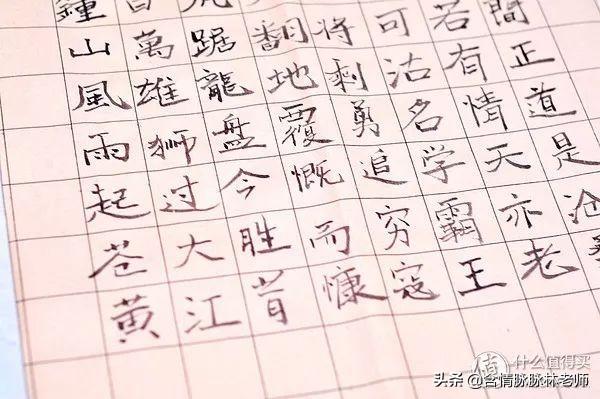 鍾山風雨起苍黄
百萬雄狮过大江
踞龍盘今胜昔
翻地覆慨而慷
将剩勇追穷寇
可沽名学霸王
若有情天亦老
間正道是沧
值 什么值得买
头条 @含情脉脉林老师